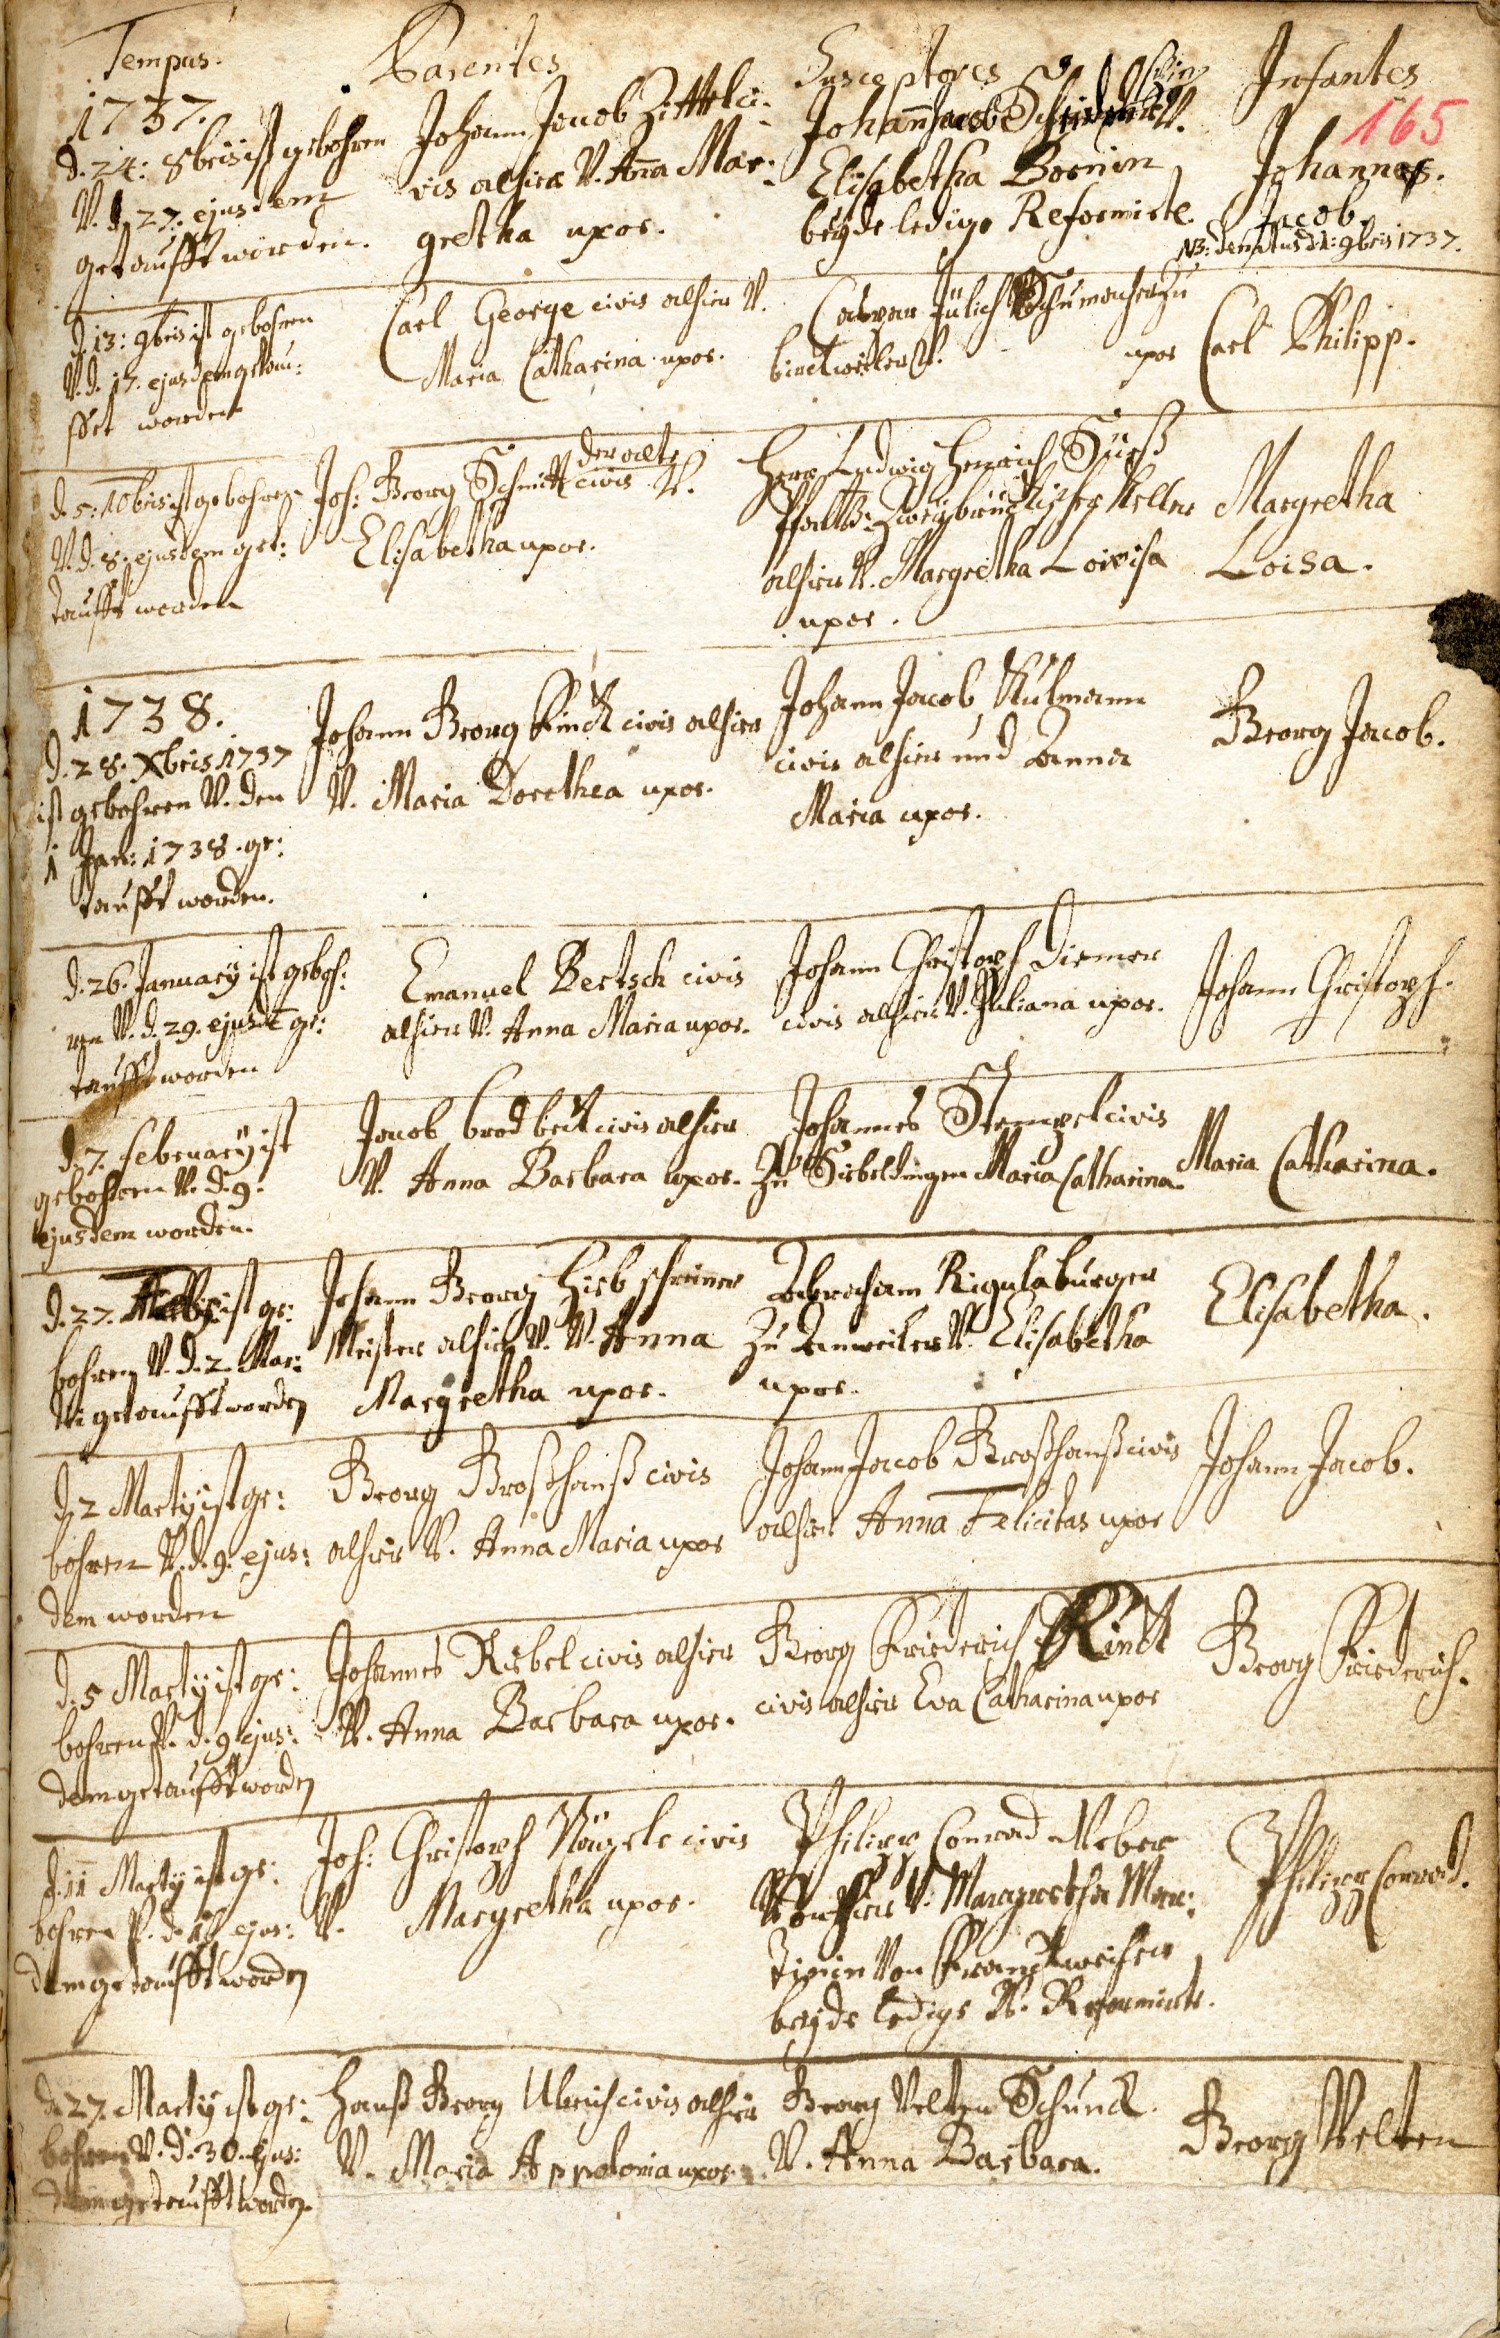 Tempus.
Parentes
Susceptores
Infantes
165
1737.
d. 24: 8bris ist gebohren
V. d. 27. ejusdem
getaufft worden.
Johann Jacob Zittel ci:
vis alhier V. Aña Mar:
gretha uxor.
Johann Jacob
Elisabetha
beyde ledige Reformirte.
Johannes.
Jacob.
NB: denatus d. 1: 9bris 1737.
d. 13: 9bris ist gebohren
V. d. 17. ejusdem getau:
fft worden
Carl George civis alhier V.
Maria Catharina uxor.
Caspar Jülich Schumacher zu
V. uxor
Carl Philipp.
d. 5: 10bris ist gebohren
V. d. 8. ejusdem ge:
taufft worden
der alte
Joh: Georg Schmitt civis V.
Elisabetha uxor.
Herr Ludwig Henrich Süeß
Pfaltz-Zweybrückischer Keller
alhier V. Margretha Lovisa
uxor.
Margretha
Loisa.
1738.
d. 28. Xbris 1737
ist gebohren V. den
1 Jan: 1738. ge:
taufft worden.
Johann Georg Kinck civis alhier
V. Maria Dorethea uxor.
Johann Jacob Kulmann
civis alhier und Anna
Maria uxor.
Georg Jacob.
d. 26. January ist geboh:
ren V. d. 29. ejusde ge:
taufft worden
Emanuel Bertsch civis
alhier V. Anna Maria uxor.
Johann Christoph Diemer
civis alhier V. Juliana uxor.
Johann Christoph.
d. 7. February ist
gebohren V. d. 9.
ejusdem worden.
Jacob Brodbeck civis alhier
V. Anna Barbara uxor.
Johannes Stempel civis
zu Siebeldingen Maria Catharina.
Maria Catharina.
d. 27. ist ge:
bohren V. d. 2. Mar:
tii getaufft worden
Johann Georg Hieb schreiner
Meister alhier V. V. Anna
Margretha uxor.
Abraham Rigula burger
zu Anweiler V. Elisabetha
uxor.
Elisabetha.
d. 2 Martij ist ge:
bohren V. d. 9. ejus:
dem worden
Georg Großhanß civis
alhier V. Anna Maria uxor
Johann Jacob Großhanß civis
alhier Anna Felicitas uxor
Johann Jacob.
d. 5 Martij ist ge:
bohren V. d. 9. ejus:
dem getaufft worden
Johannes Riebel civis alhier
V. Anna Barbara uxor.
Georg Friederich Kinck
civis alhier Eva Catharina uxor
Georg Friederich.
d. 11 Martij ist ge:
bohren V. d. 16 ejus:
dem getaufft worden
Joh: Christoph Nägele civis
V. Margretha uxor.
Philipp Conrad Weber
V. Margretha
von Franckweiler
beyde ledige V. Reformirte.
Philipp Conrad.
d. 27. Martij ist ge:
bohren V. d. 30. ejus:
dem getaufft worden.
Hanß Georg Ulrich civis alhier
V. Maria Appolonia uxor.
Georg Velten Schunck.
V. Anna Barbara.
Georg Velten